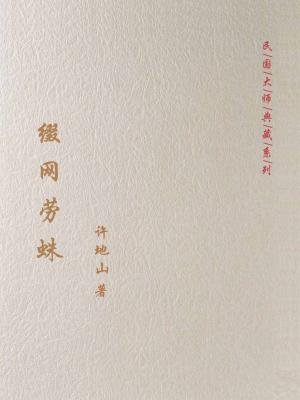 民国大师典藏系列
缀网劳蛛
许地山 著